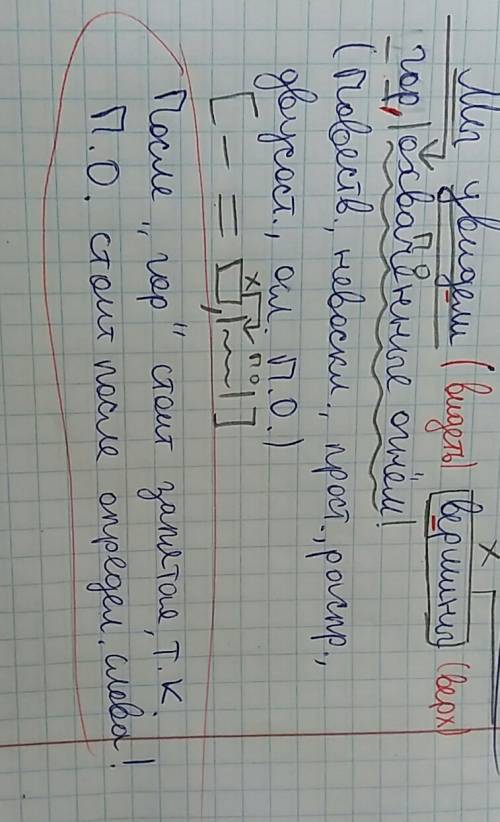 Мы увидели (видеть) вершины (верх)
гор, |охваченные огнём|
п.о
(Повеств., невоскл., прост., распр.,
двусост., осл. П.О.)
[ – = □, |~~| ]
х п.о
После „гор" стоит запятая, т.к.
П.О. стоит после определ. слова!